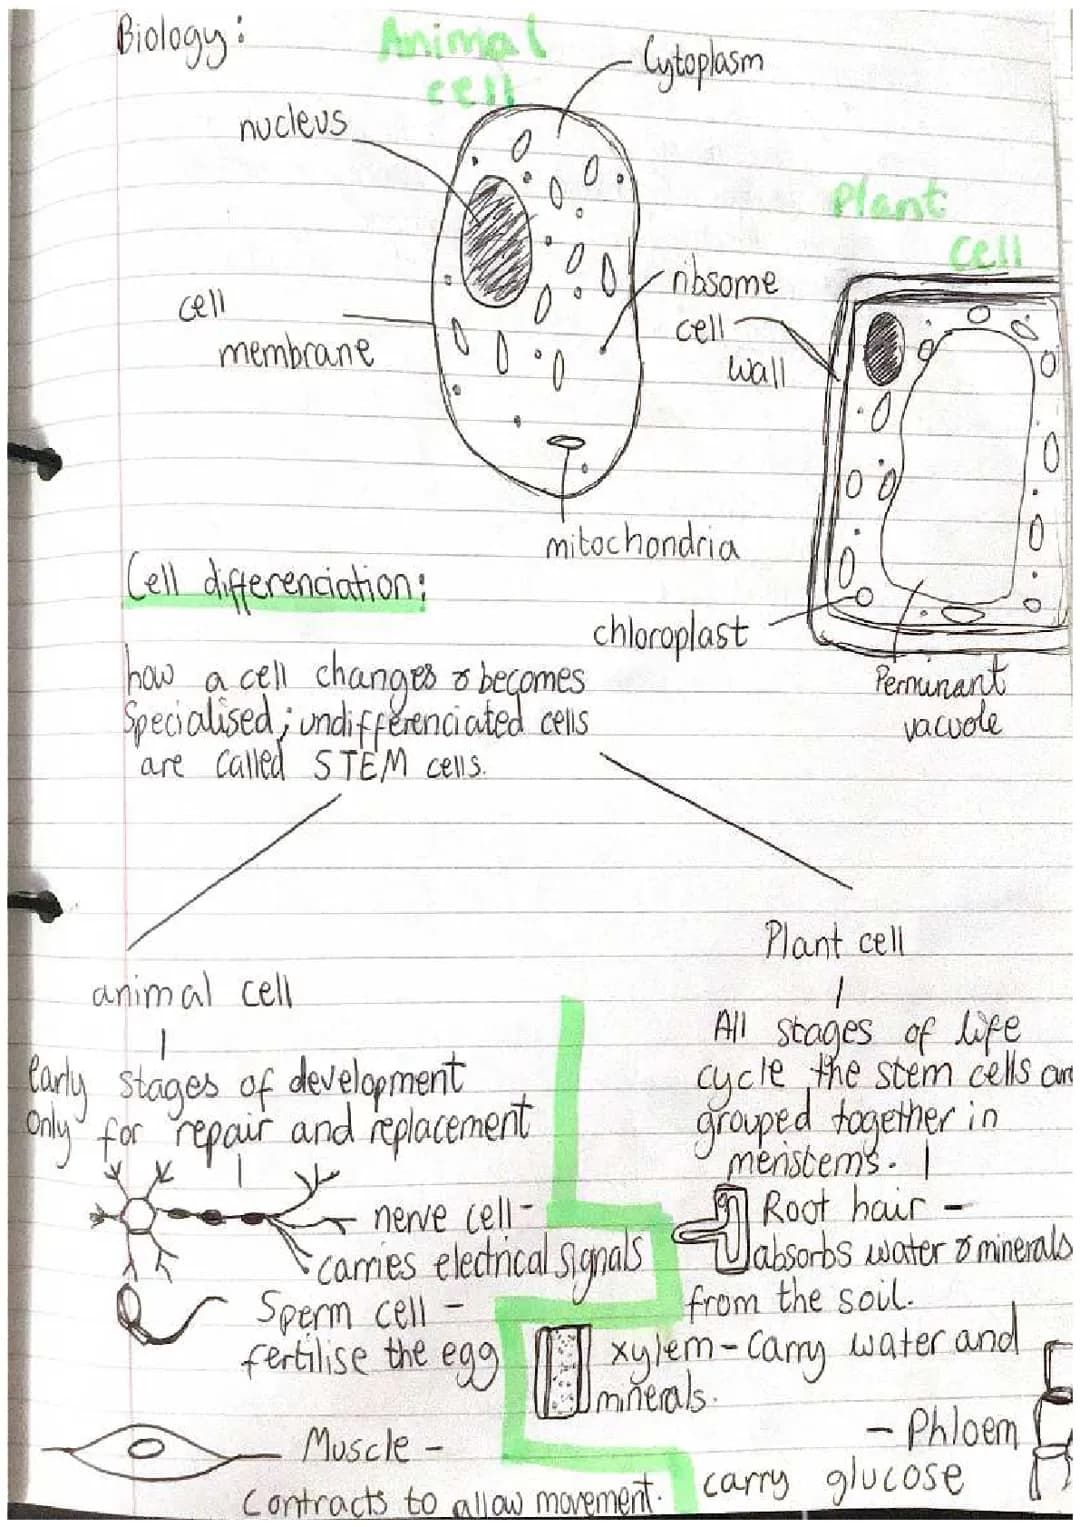 Biology:
Animal
cell
Cytoplasm
nucleus
Plant
Cell
ribsome
cell
membrane
cell
wall
mitochondria
Cell differenciation:
chloroplast
Permunant
vacuole
how a cell changes & becomes
Specialised; undifferenciated cells
are called STEM cells.
Plant cell
animal cell
All stages of life
cycle, the stem cells are
grouped together in
meristems.
early stages of development
only for repair and replacement
nerve cell -
carries electrical signals
Root hair -
absorbs water & minerals
from the soil.
Sperm cell -
fertilise the egg
xylem - carry water and
minerals.
Muscle -
contracts to allow movement.
- Phloem
carry glucose